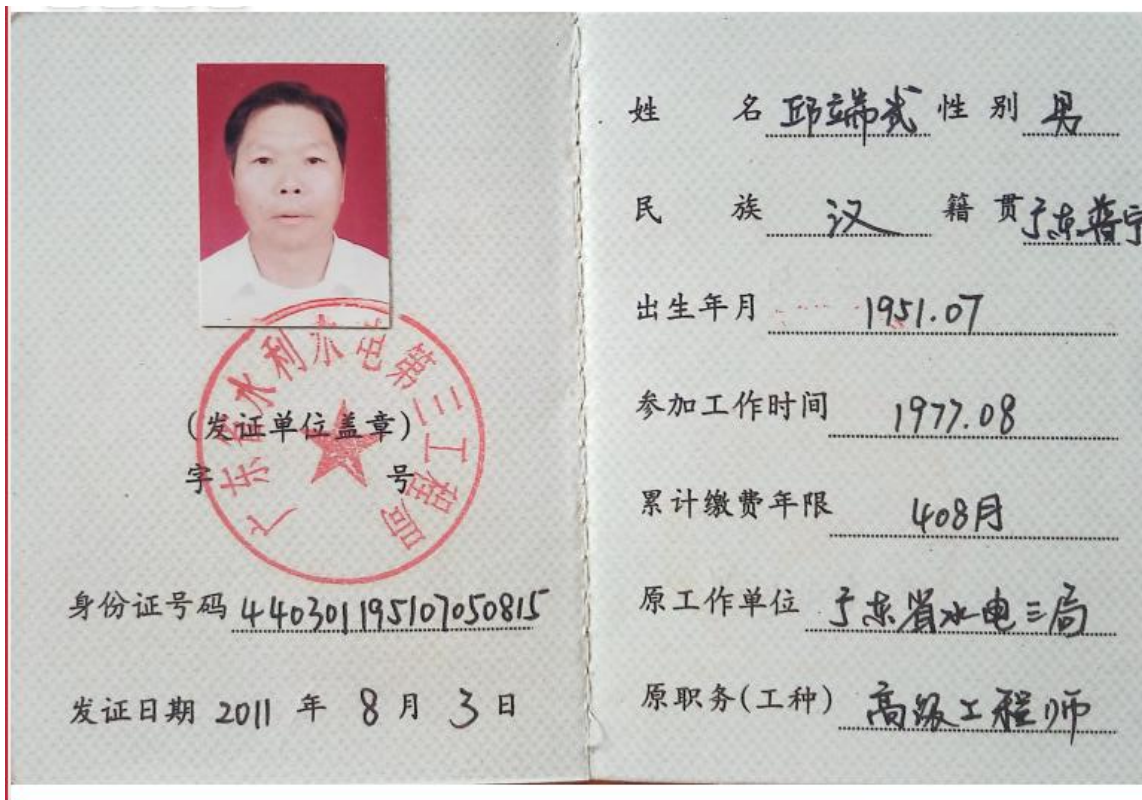 广东省水利水电第三工程局
(发证单位盖章)
字 号
身份证号码 440301195107050815
发证日期 2011 年 8 月 3 日
姓 名 邱端武 性 别 男
民 族 汉 籍 贯 广东普宁
出生年月 1951.07
参加工作时间 1977.08
累计缴费年限 408月
原工作单位 广东省水电三局
原职务(工种) 高级工程师